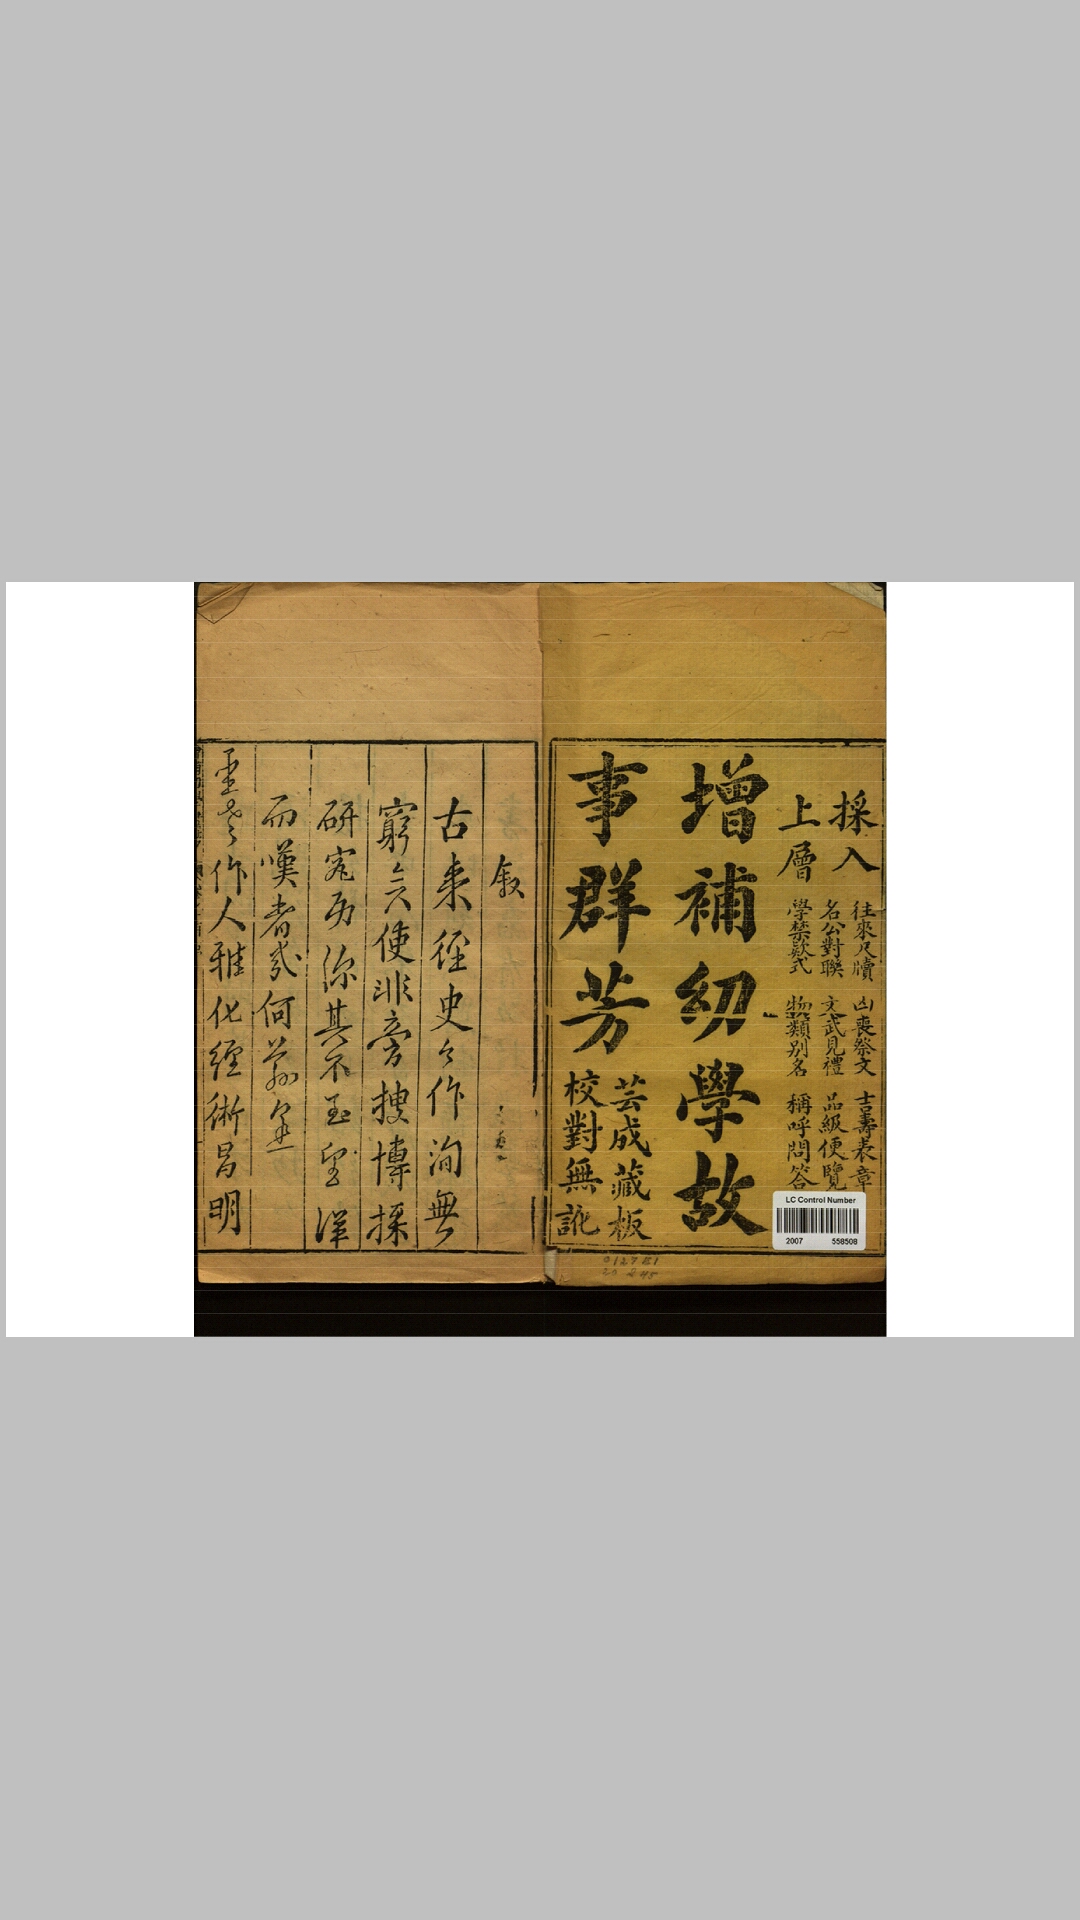 採入
上層
往來尺牘 凶喪祭文 吉壽表章
名公對聯 文武見禮 品級便覽
學禁欵式 物類別名 稱呼問答
增補幼學故
事群芳
芸成藏板
校對無訛
叙
古來經史之作洵無
窮矣使非旁搜博採
研究
其不至望洋
而嘆者幾何
作人雅化經術昌明
LC Control Number
2007 558508